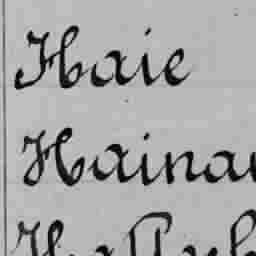 Haie
Hainau